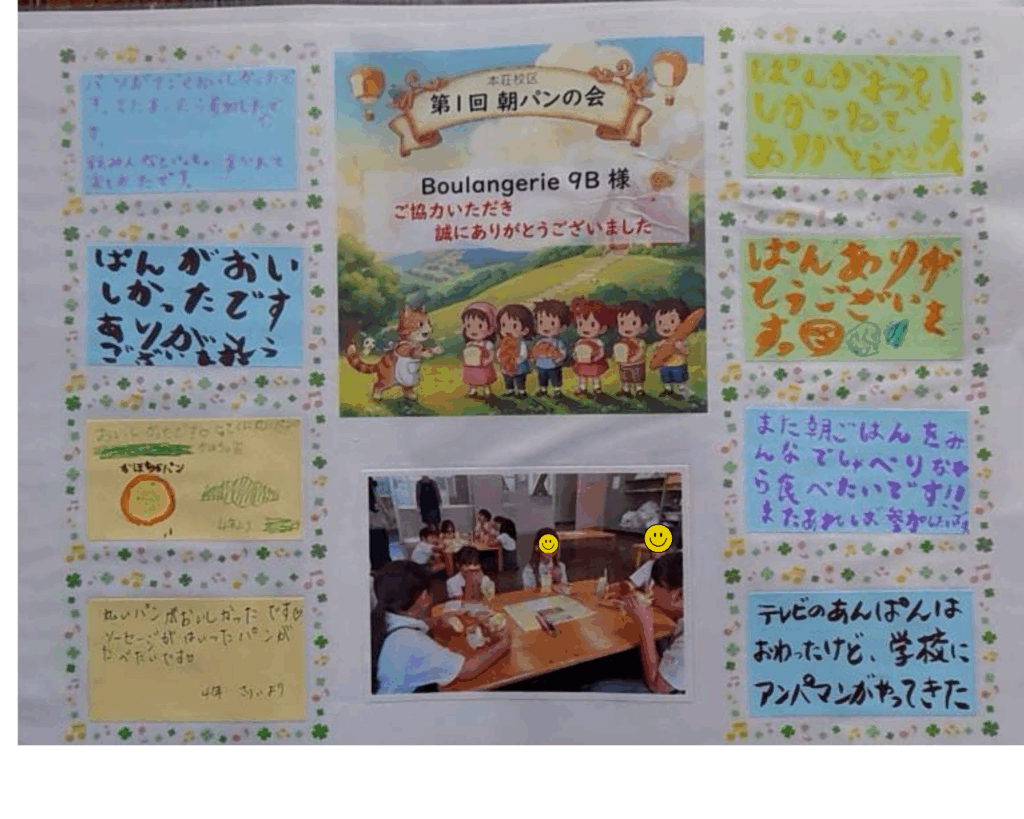 本荘校区
第1回 朝パンの会
Boulangerie 9B 様
ご協力いただき
誠にありがとうございました
パンがすごくおいしかったで
す。
おいしかったです。
ぱんがおい
しかったです
ありがとう
ございます
おいしかったです
かぼちゃパン
4年より
丸いパンがおいしかったです
ソーセージがはいったパンが
たべたいです
4年 より
ぱんがおい
しかったで
す
ぱんありが
とうございま
す。
また朝ごはんをみ
んなでしゃべりなが
ら食べたいです!!
またあれば参加したいです
テレビのあんぱんは
おわったけど、学校に
アンパマンがやってきた